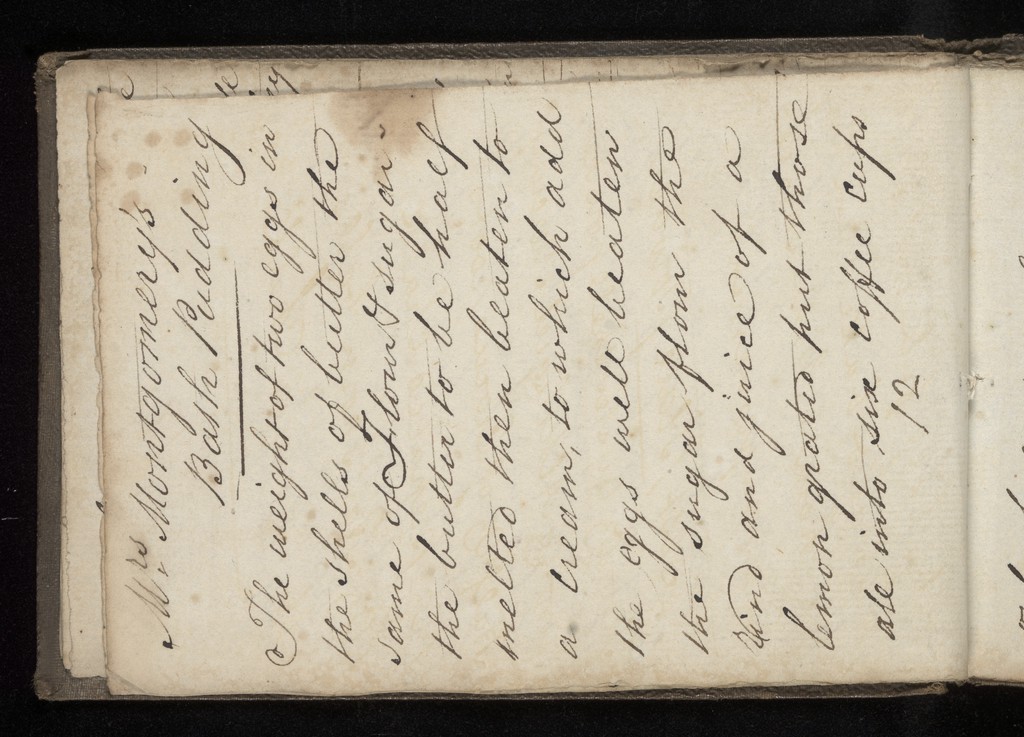 Mrs Montgomery's
Bash Pudding
The weight of two eggs in
the shells of butter the
same of Flour & sugar
the butter to be half
melted then beaten to
a cream, to which add
the eggs well beaten
the sugar flour the
Rind and juice of a
lemon grated put those
all into six coffee cups
12